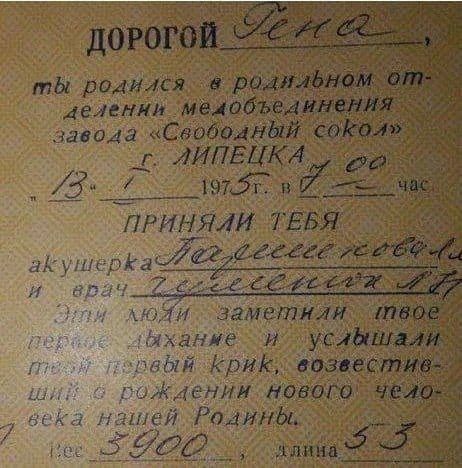 ДОРОГОЙ Гена,
ты родился в родильном от-
делении медобъединения
завода «Свободный сокол»
г. ЛИПЕЦКА
„13" I 1975 г. в 7 00 час.
ПРИНЯЛИ ТЕБЯ
акушерка
и врач
Эти люди заметили твое
первое дыхание и услышали
твой первый крик, возвестив-
ший о рождении нового чело-
века нашей Родины.
Вес 3900, длина 53